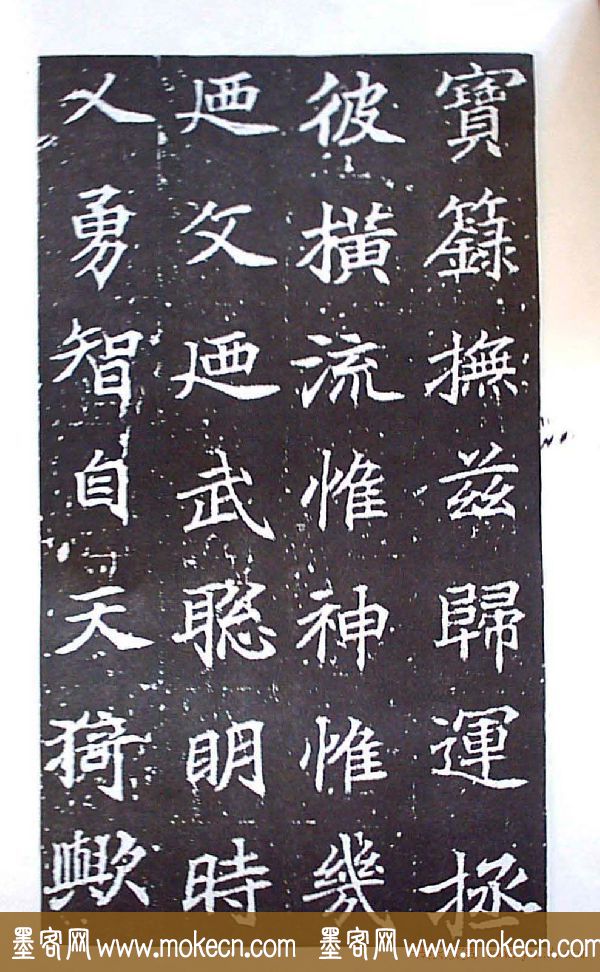 寶籙撫茲歸運拯
彼橫流惟神惟幾
廼文廼武聰明時
乂勇智自天猗歟
墨客网 www.mokecn.com 墨客网 www.mokecn.com